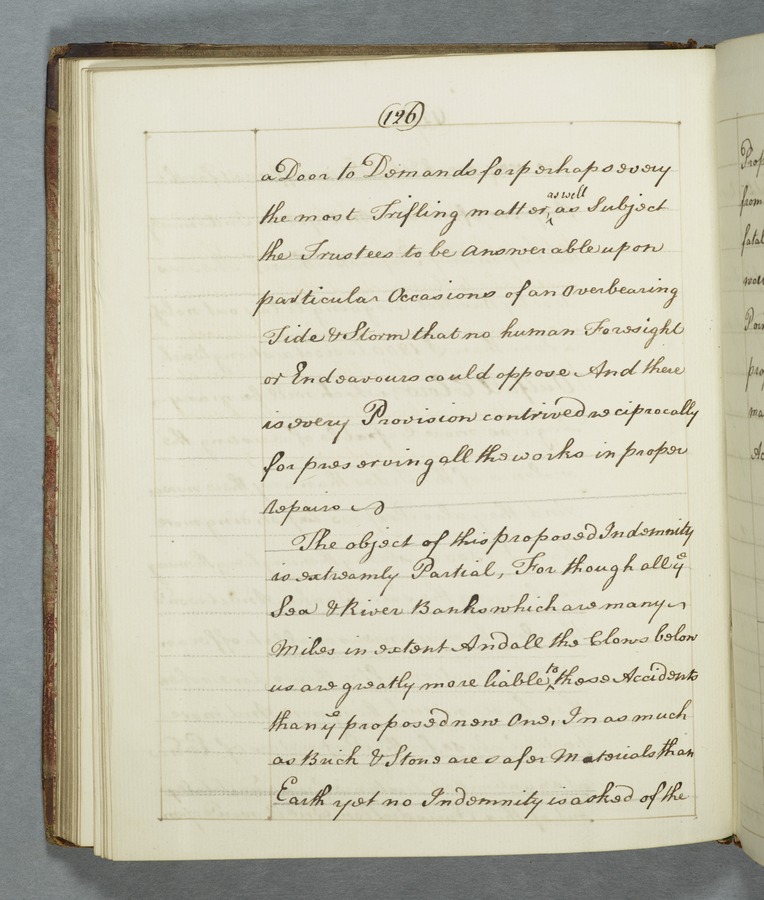 126
a Door to Demands for perhaps every
as well
the most Trifling matter, ^ as Subject
the Trustees to be answerable upon
particular Occasions of an Overbearing
Tide & Storm that no human Foresight
or Endeavours could oppose And there
is every Provision contrived reciprocally
for preserving all the works in proper
repairs
The object of this proposed Indemnity
is extreamly Partial, For though all ye
Sea & River Banks which are many
Miles in extent And all the Clows below
to
us are greatly more liable ^ these Accidents
than ye proposed new One, In as much
as Brick & Stone are safer Materials than
Earth yet no Indemnity is asked of the
Prop
from
fatal